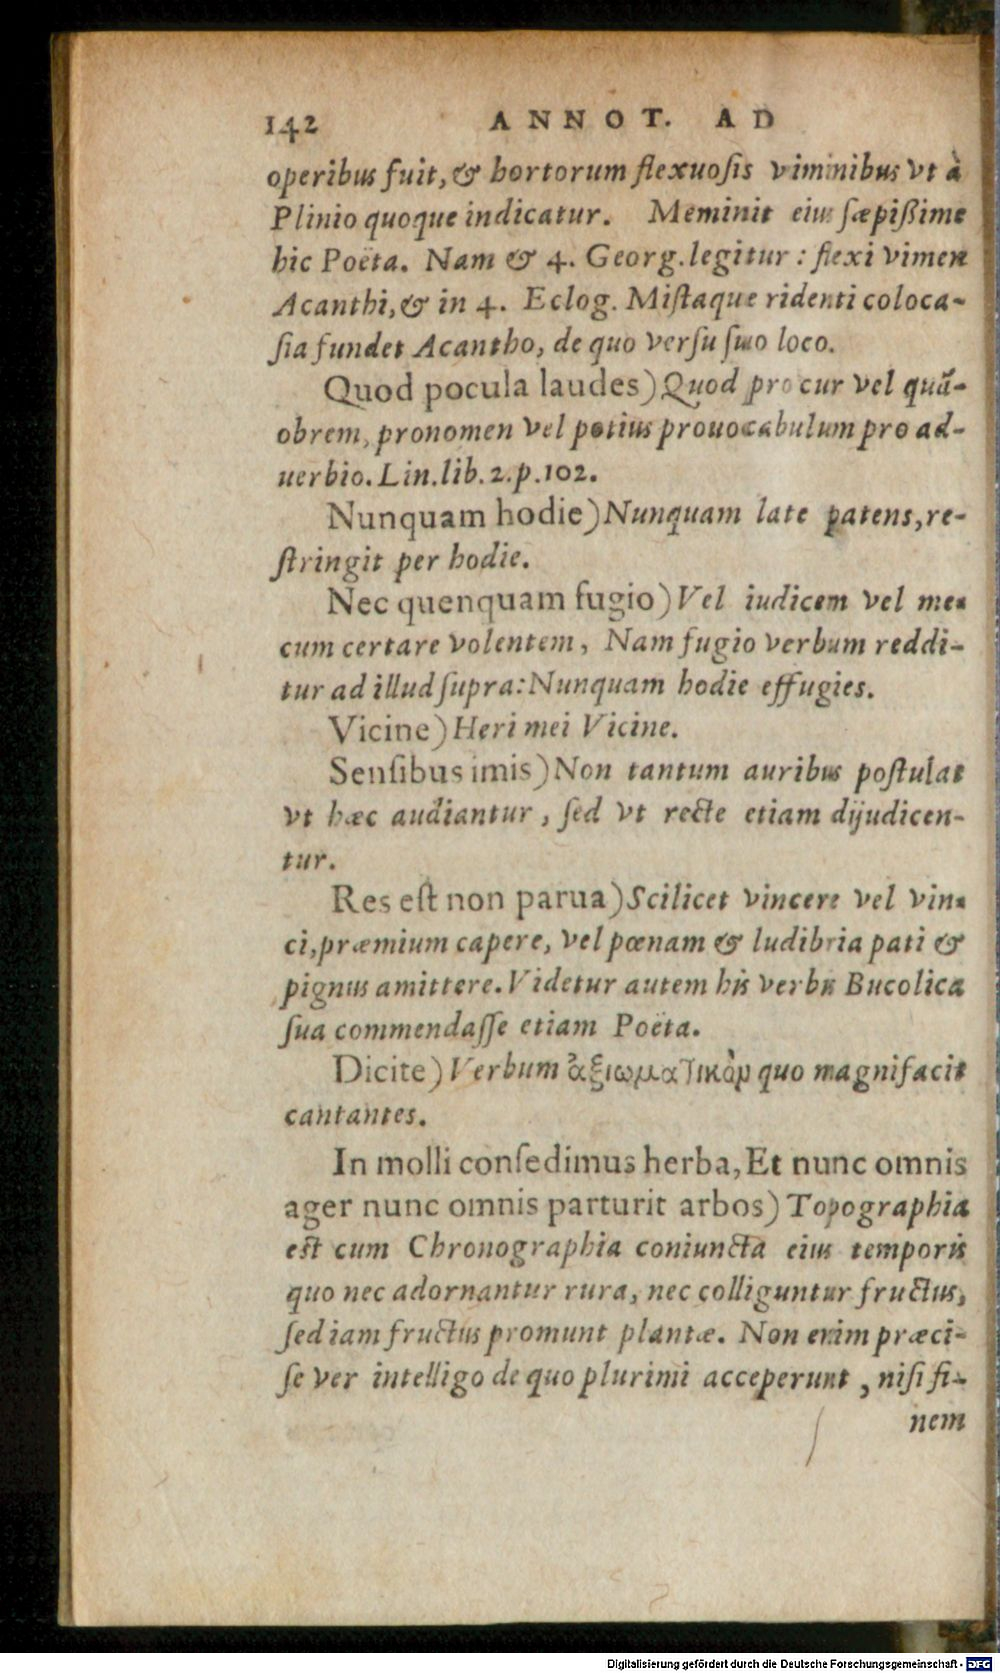 142 ANNOT. AD
operibus fuit, & hortorum flexuosis viminibus vt à
Plinio quoque indicatur. Meminit eius sæpißime
hic Poëta. Nam & 4. Georg. legitur : flexi vimen
Acanthi, & in 4. Eclog. Mistaque ridenti coloca-
sia fundet Acantho, de quo versu suo loco.
Quod pocula laudes) Quod pro cur vel quã-
obrem, pronomen vel potius prouocabulum pro ad-
uerbio. Lin. lib. 2. p. 102.
Nunquam hodie) Nunquam late patens, re-
stringit per hodie.
Nec quenquam fugio) Vel iudicem vel me-
cum certare volentem, Nam fugio verbum reddi-
tur ad illud supra: Nunquam hodie effugies.
Vicine) Heri mei Vicine.
Sensibus imis) Non tantum auribus postulat
vt hæc audiantur, sed vt recte etiam dijudicen-
tur.
Res est non parua) Scilicet vincere vel vin-
ci, præmium capere, vel pœnam & ludibria pati &
pignus amittere. Videtur autem his verbis Bucolica
sua commendasse etiam Poëta.
Dicite) Verbum ἀξιωματικὸν quo magnifacit
cantantes.
In molli consedimus herba, Et nunc omnis
ager nunc omnis parturit arbos) Topographia
est cum Chronographia coniuncta eius temporis
quo nec adornantur rura, nec colliguntur fructus,
sed iam fructus promunt plantæ. Non enim præci-
se ver intelligo de quo plurimi acceperunt, nisi fi-
nem
Digitalisierung gefördert durch die Deutsche Forschungsgemeinschaft - DFG